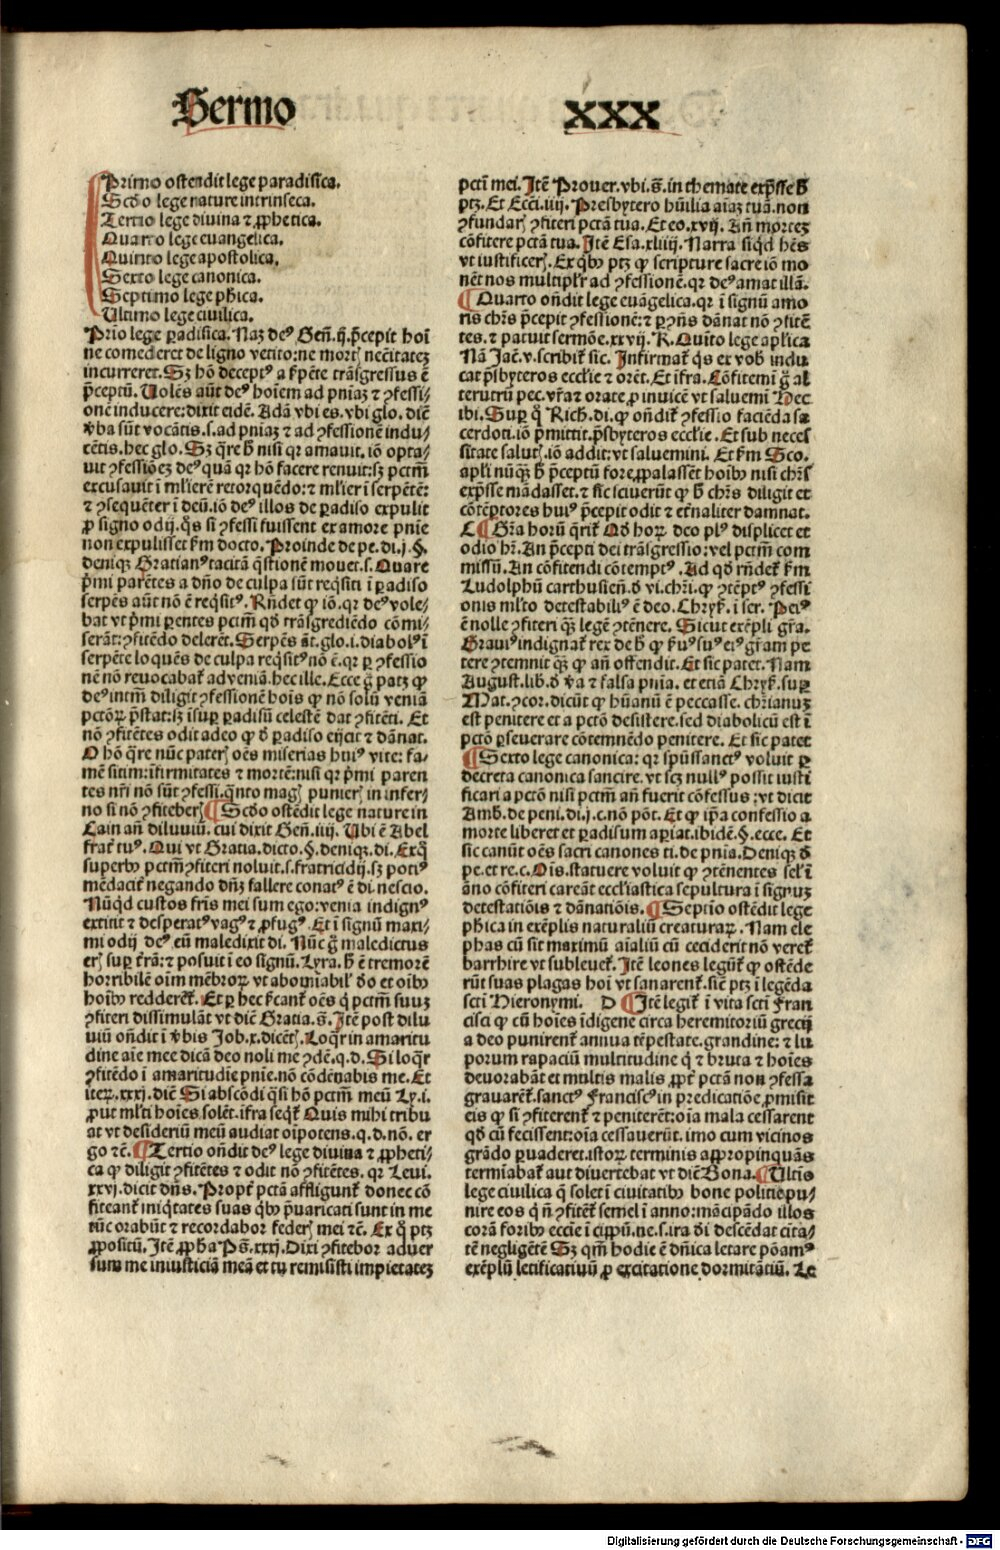 Sermo XXX
Primo ostendit lege paradisica.
Scđo lege nature intrinseca.
Tertio lege diuina ⁊ ꝓphetica.
Quarto lege euangelica.
Quinto lege apostolica.
Sexto lege canonica.
Septimo lege pħica.
Ultimo lege ciuilica.
Prīo lege ꝑadisica. Naꝫ deꝰ Geñ.ij.p̄cepit hoī
ne comederet de ligno vetito: ne mort̄ nec̄itateꝫ
incurreret. Sꝫ hō deceptꝰ a ẜpēte trāsgressus ē
p̄ceptū. Uolēs aūt deꝰ hoīem ad pn̄iaꝫ ⁊ ꝯfessi-
onē inducere: dixit eidē. Adā vbi es. vbi glo. diē
ꝟba sūt vocātis.s.ad pniaꝫ ⁊ ad ꝯfessionē indu/
cētis. hec glo. Sꝫ q̄re ħ nisi qꝛ amauit. iō opta-
uit ꝯfessiōeꝫ deꝰ quā qꝛ hō facere renuit: sꝫ pctm̄
excusauit ī mlierē retorquēdo: ⁊ mlier ī serpētē:
⁊ ꝯsequēter ī deū. iō deꝰ illos de ꝑadiso expulit
ꝓ signo odij. q̄s si ꝯfessi fuissent ex amore pnie
non expulisset ẜm docto. Proinde de pe.di.j.§.
deniqꝫ Gratianꝰ tacitā q̄stionē mouet.s. Quare
p̄mi parētes a dño de culpa sūt req̄siti ī ꝑadiso
serpēs aūt nō ē req̄sitꝰ. Rñdet ꝙ iō. qꝛ deꝰ vole/
bat vt p̄mi ꝑentes pctm̄ qđ trāsgrediēdo cōmi-
serāt: ꝯfitēdo delerēt. Serpēs āt. glo.i.diabolꝰ ī
serpēte loquēs de culpa req̄sitꝰ nō ē. qꝛ ꝑ ꝯfessio
nē nō reuocabat̄ ad veniā. hec ille. Ecce g̊ patꝫ ꝙ
deꝰ intm̄ diligit ꝯfessionē hoīs ꝙ nō solū veniā
pctōꝝ p̄stat: sꝫ īsuꝑ ꝑadisū celestē dat ꝯfitēti. Et
nō ꝯfitētes odit adeo ꝙ đ ꝑadiso eijcit ⁊ dānat.
O hō q̄re nūc pateris oēs miserias huiꝰ vite: fa-
mē sitim: īfirmitates ⁊ mortē: nisi qꝛ p̄mi paren
tes nr̄i nō sūt ꝯfessi. q̄nto magꝭ punierꝭ in infer/
no si nō ꝯfiteberꝭ ¶ Scđo ostēdit lege nature in
Cain añ diluuiū. cui dixit Geñ.iiij. Ubi ē Abel
frat̄ tuꝰ. Qui vt Gratia.dicto.§.deniqꝫ.di. Ex q̄
superbꝰ pctm̄ ꝯfiteri noluit.s.fratricidij. sꝫ potiꝰ
mēdacit̄ negando dñꝫ fallere conatꝰ ē di.nescio.
Nūqd custos fr̄is mei sum ego: venia indignꝰ
extitit ⁊ desperatꝰ vagꝰ ⁊ ꝓfugꝰ. Et ī signū maxi-
mi odij deꝰ eū maledixit di. Nūc g̊ maledictus
erꝭ suꝑ t̄rā: ⁊ posuit ī eo signū. Lyra. ħ ē tremorē
horribilē oīm mēbroꝝ vt aboīabil̄ đo et oībꝰ
hoībꝰ reddereť. Et ꝑ hec ẜcant̄ oēs q̄ pctm̄ suuꝫ
ꝯfiteri dissimulāt vt diē Gratia.s. Itē post dilu
uiū oñdit ī ꝟbis Job.x.dicētꝭ. Loq̄r in amaritu
dine aīe mee dicā deo noli me ꝯdē.q.d. Si loq̄r
ꝯfitēdo ī amaritudīe pnīe. nō cōdēnabis me. Et
iteꝝ.xxxj.diē Si abscōdi q̄si hō pctm̄ meū Ly.i.
ꝓut mlti hoīes solēt. īfra seqt̄ Quis mihi tribu
at vt desideriū meū audiat oīpotens.q.d.nō. er
go ⁊c̄. ¶ Tertio oñdit deꝰ lege diuina ⁊ ꝓpheti-
ca ꝙ diligit ꝯfitētes ⁊ odit nō ꝯfitētes. qꝛ Leui.
xxvj.dicit dñs. Propt̄ pctā affligunt̄ donec cō
fiteant̄ iniq̄tates suas q̄bꝰ p̄uaricati sunt in me
tūc orabūt ⁊ recordabor federꝭ mei ⁊c̄. Ex q̊ ptꝫ
ꝓpositū. Itē ꝓpħa Ps̄.xxxj. Dixi ꝯfitebor aduer
sum me iniusticiā meā et tu remisisti impietateꝫ
pcti mei. Itē Prouer.vbi.s̄.in themate exp̄sse ħ
ptꝫ. Et Ecci.iiij. Presbytero hūilia aīaꝫ tuā. non
ꝯfundarꝭ ꝯfiteri pctā tua. Et eo.xvij. Añ morteꝫ
cōfitere pctā tua. Itē Esa.xliiij. Narra siqd hēs
vt iustificerꝭ. Ex q̊bꝰ ptꝫ ꝙ scripture sacre iō mo
nēt nos multipl̄r ad ꝯfessionē. qꝛ deꝰ amat illā.
¶ Quarto oñdit lege euāgelica. qꝛ ī signū amo
ris chr̄s p̄cepit ꝯfessionē: ⁊ ꝑ ꝯn̄s dānat nō ꝯfitē
tes. ⁊ patuit sermōe.xxvij. R. Quīto lege aplica
Nā Jac̄.v.scribit̄ sic. Infirmat̄ q̄s ex vobꝭ indu
cat p̄sbyteros ecclīe ⁊ orēt. Et īfra. Cōfitemī g̊ al
terutrū pec.vr̄a ⁊ orate ꝓ inuicē vt saluemī Hec
ibi. Suꝑ q̊ Rich.di.ꝙ oñdit̄ ꝯfessio faciēda sa
cerdoti. iō p̄mittit p̄sbyteros ecclīe. Et sub neces
sitate salutꝭ. iō addit: vt saluemini. Et ẜm Sco.
apli nūqꝫ ħ p̄ceptū fore ꝓpalassēt hoībꝰ nisi chr̄s
exp̄sse mādasset. ⁊ sic sciuerūt ꝙ ħ chr̄s diligit et
cōtēptores huiꝰ p̄cepit odit ⁊ et̄naliter damnat.
C ¶ Gr̄a horū q̄rit̄ Qđ hoꝝ deo plꝰ displicet et
odio hr̄. An p̄cepti dei trāsgressio: vel pctm̄ com
missū. An cōfitendi cōtemptꝰ. Ad qđ rñdet̄ ẜm
Ludolphū carthusieñ.đ vi.chr̄i. ꝙ ꝯtēptꝰ ꝯfessi
onis mlto detestabiliꝰ ē deo. Chryẜ. ī ser. Peiꝰ
ē nolle ꝯfiteri qꝫ legē ꝯtēnere. Sicut exēpli gr̄a.
Grauiꝰ indignat̄ rex de ħ ꝙ ẜuꝰ suꝰ eiꝰ gr̄am pe
tere ꝯtemnit qꝫ ꝙ añ offendit. Et sic patet. Nam
August.lib.đ ꝟa ⁊ falsa pnīa. et etiā Chryẜ. suꝑ
Mat. ꝯcor.dicūt ꝙ hūanū ē peccasse. chr̄ianuꝫ
est penitere et a pctō desistere. sed diabolicū est ī
pctō ꝑseuerare cōtemnēdo penitere. Et sic patet
¶ Sexto lege canonica: qꝛ sp̄ussanctꝰ voluit ꝑ
decreta canonica sancire. vt scꝫ nullꝰ possit iusti
ficari a pctō nisi pctm̄ añ fuerit cōfessus: vt dicit
Amb̄.de peni.di.j.c.nō pōt. Et ꝙ ip̄a confessio a
morte liberet et ꝑadisum aꝑiat. ibidē.§.ecce. Et
sic canūt oēs sacri canones ti.de pnīa. Deniqꝫ đ
pe.et re.c. Oīs. statuere voluit ꝙ ꝯtēnentes sel̄ ī
āno cōfiteri careāt eccl̄iastica sepultura ī signuꝫ
detestatiōis ⁊ dānatiōis. ¶ Septīo ostēdit lege
pħica in exēplis naturaliū creaturaꝝ. Nam ele
phas cū sit maximū aīaliū cū ceciderit nō veret̄
barrhire vt subleuet̄. Itē leones legūt̄ ꝙ ostēde
rūt suas plagas hoī vt sanarent̄. sic ptꝫ ī legēda
scti Hieronymi. D ¶ Itē legit̄ ī vita scti Fran
cisci ꝙ cū hoīes īdigene circa heremitoriū grecij
a deo punirent̄ annua tēpestate. grandine: ⁊ lu
porum rapaciū multitudine q̄ ⁊ bruta ⁊ hoīes
deuorabāt et multis malis ꝓpt̄ pctā non ꝯfessa
grauareť. sanctꝰ Franciscꝰ in predicatiōe ꝓmisit
eis ꝙ si ꝯfiterent̄ ⁊ peniterēt: oīa mala cessarent
qđ cū fecissent: oīa cessauerūt. imo cum vicinos
grādo ꝑuaderet. istoꝝ terminis appropinquās
termīabat̄ aut diuertebat vt diē Bona. ¶ Ultīs
lege ciuilica q̄ solet ī ciuitatibꝰ bone politie pu/
nire eos q̄ ñ ꝯfitent̄ semel ī anno: mācipādo illos
corā foribꝰ eccīe ī cippū. ne.s.ira đi descēdat cīta/
tē negligētē Sꝫ qm̄ hodie ē dñica letare pōamꝰ
exēplū letificatiuū ꝓ excitatione dormitātiū. Le
Digitalisierung gefördert durch die Deutsche Forschungsgemeinschaft - DFG